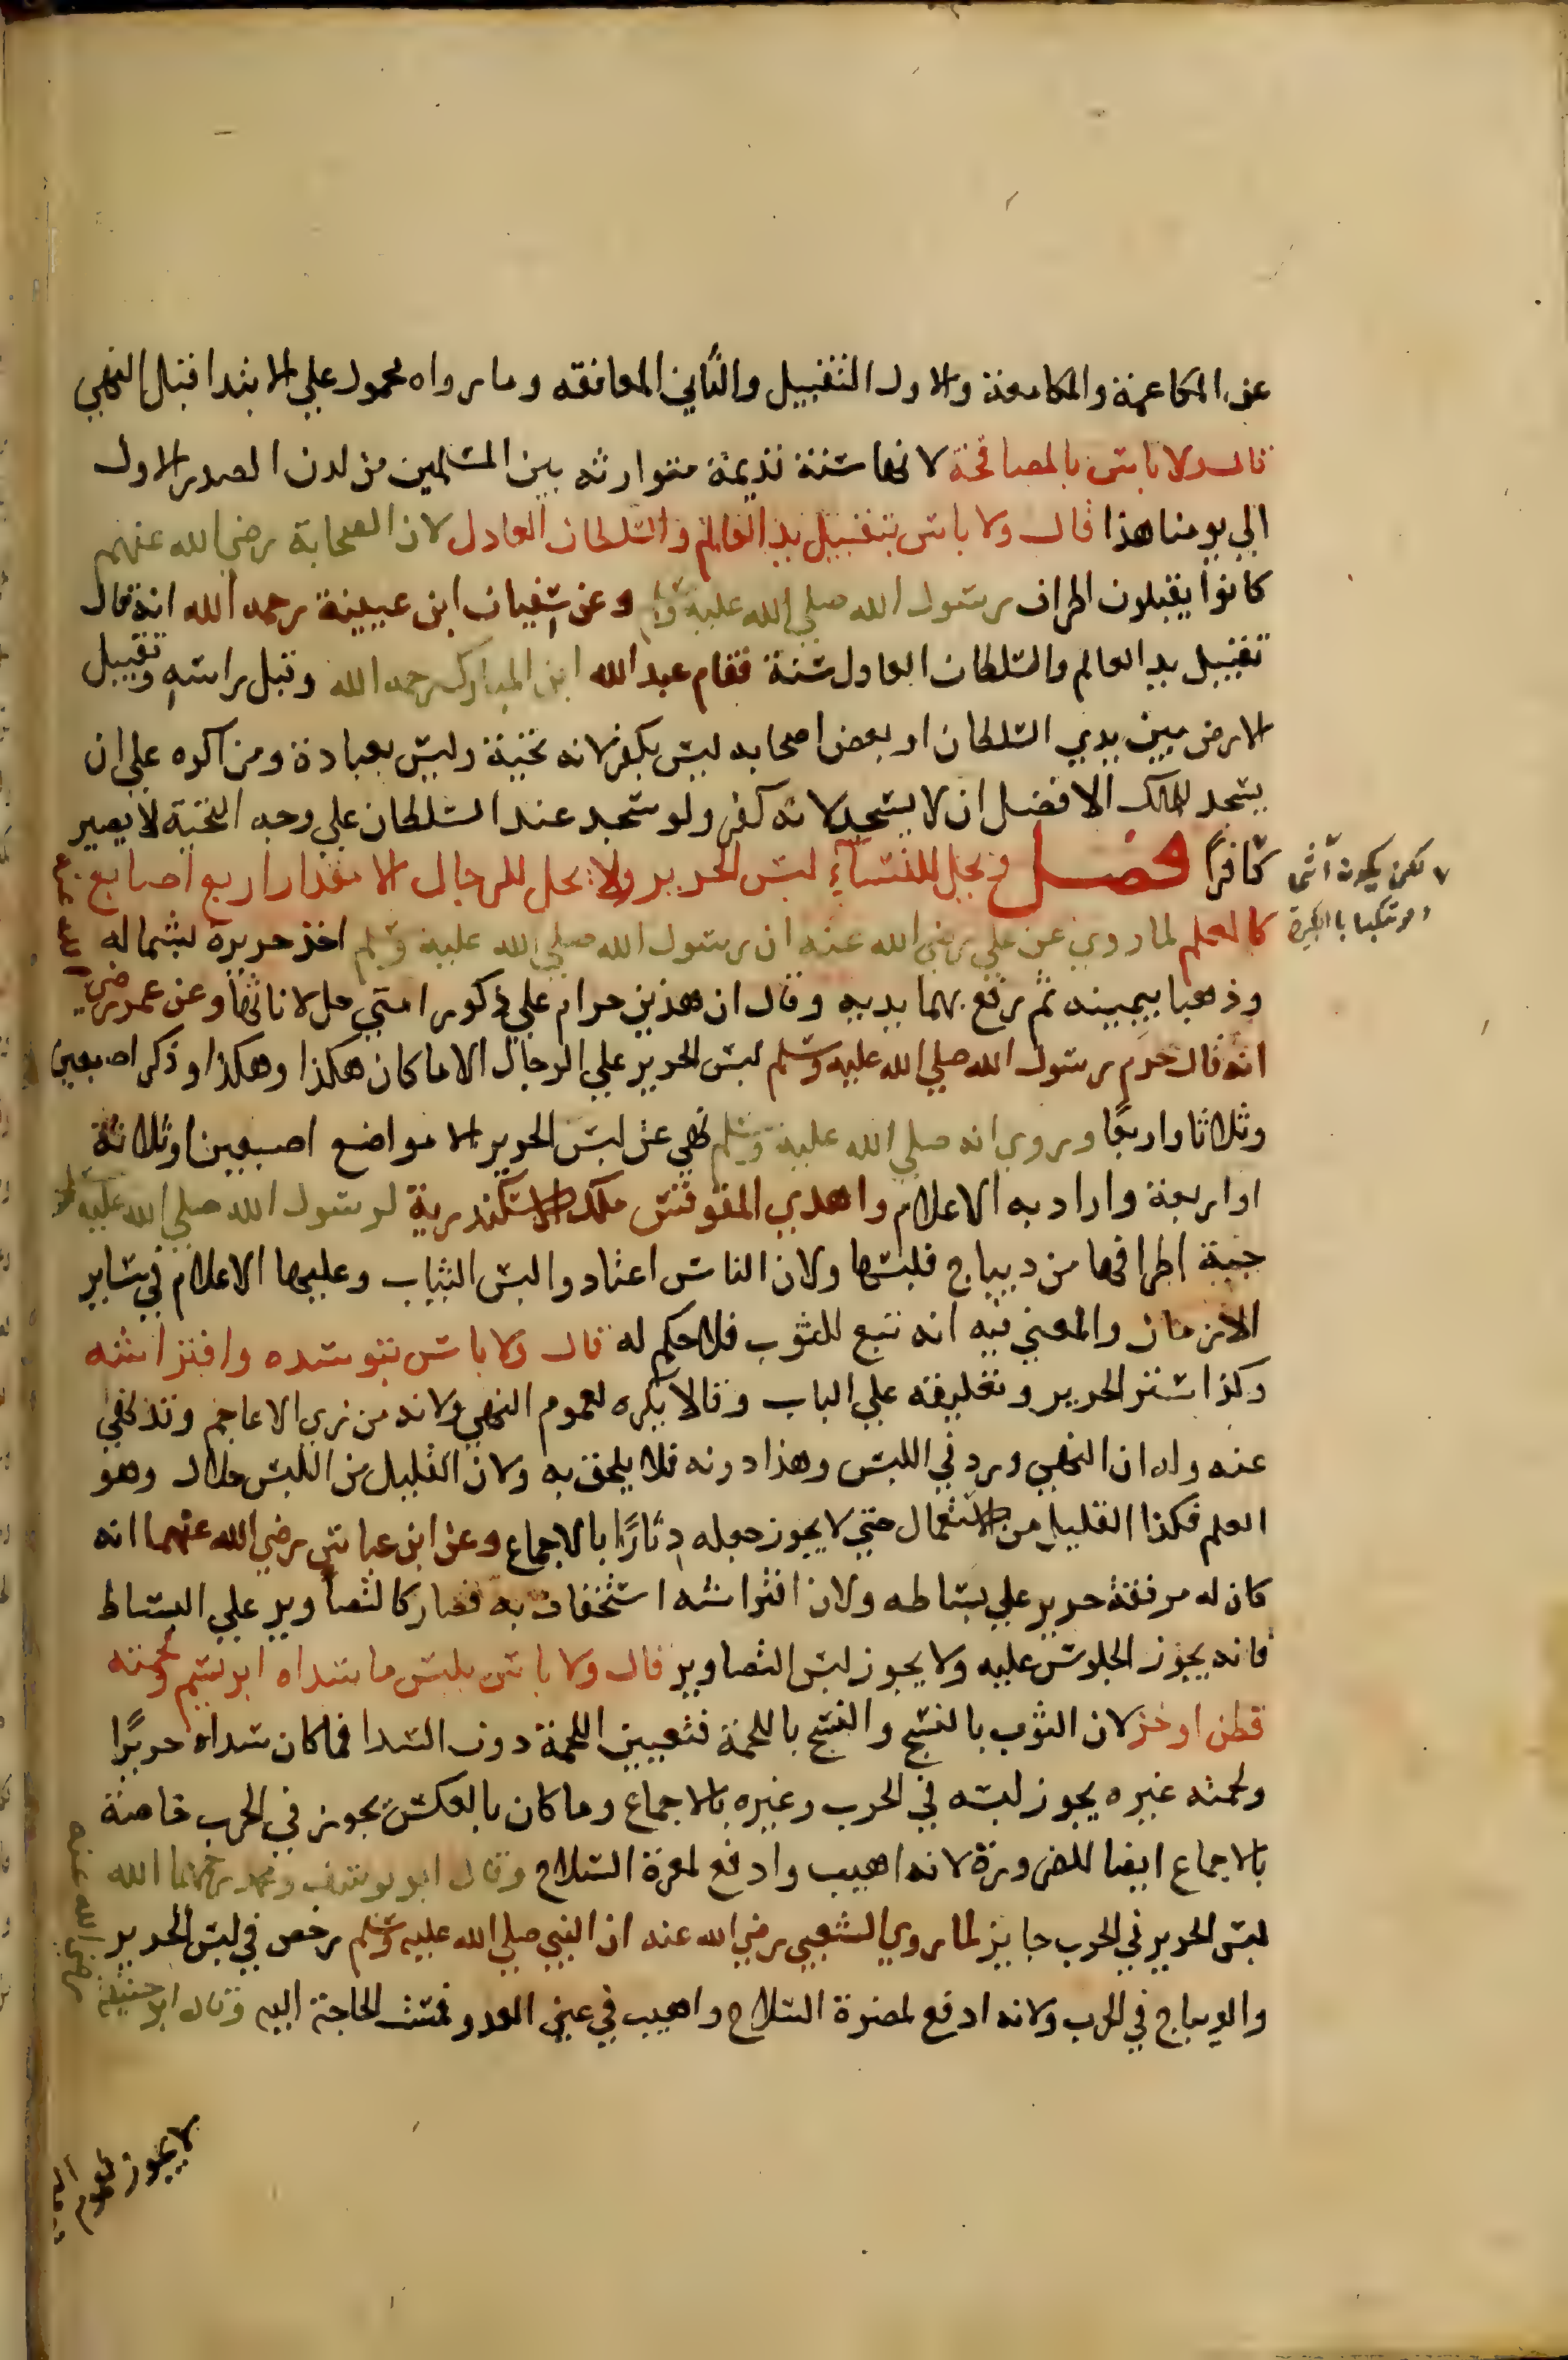 عن المكاعمة والمكامعة والاول التقبيل والثاني المعانقه وما رواه محمول علي الابتدا قبل النهي
قال ولا باس بالمصافحة لانها سنة قديمة متوارثه بين المسلمين من لدن الصدر الاول
الي يومنا هذا قال ولا باس بتقبيل يد العالم والسلطان العادل لان الصحابة رضي الله عنهم
كانوا يقبلون اطراف رسول الله صلي الله عليه وسلم وعن سفيان ابن عيينة رحمه الله انه قال
تقبيل يد العالم والسلطان العادل سنة فقام عبد الله ابن المبارك رحمه الله وقبل راسه وتقبيل
الارض بين يدي السلطان او بعض اصحابه ليس بكفر لانه تحية وليس بعبادة ومن اكره علي ان
يسجد للملك الافضل ان لا يسجد لانه كفر ولو سجد عند السلطان علي وجه التحية لا يصير
كافرًا فصل ويحل للنسآء لبس الحرير ولا يحل للرجال الا مقدار اربع اصابع
لكن يكون آثما
مرتكبا بالكبيرة
كالعلم لما روي عن علي رضي الله عنه ان رسول الله صلي الله عليه وسلم اخذ حريرة بشماله
وذهبا بيمينه ثم رفع بهما يديه وقال ان هذين حرام علي ذكور امتي حل لاناثها وعن عمر رضي
الله عنه
انه قال حرم رسول الله صلي الله عليه وسلم لبس الحرير علي الرجال الا ما كان هكذا وهكذا وذكر اصبعين
وثلاثا واربعًا وروي انه صلي الله عليه وسلم نهي عن لبس الحرير الا مواضع اصبعين او ثلاثة
او اربعة واراد به الاعلام واهدي المقوقس ملك الاسكندرية لرسول الله صلي الله عليه
جبة اطرافها من ديباج فلبسها ولان الناس اعتادوا لبس الثياب وعليها الاعلام في ساير
الازمان والمعني فيه انه تبع للثوب فلا حكم له قال ولا باس بتوسده وافتراشه
وكذا ستر الحرير وتعليقه علي الباب وقالا يكره لعموم النهي ولانه من زي الاعاجم وقد نهي
عنه وله ان النهي ورد في اللبس وهذا دونه فلا يلحق به ولان القليل من اللبس حلال وهو
العلم فكذا القليل من الاستعمال حتي لا يجوز جعله دثارًا بالاجماع وعن ابن عباس رضي الله عنهما انه
كان له مرفقة حرير علي بساطه ولان افتراشه استخفاف به فصار كالتصاوير علي البساط
فانه يجوز الجلوس عليه ولا يجوز لبس التصاوير قال ولا باس بلبس ما سداه ابريسم ولحمته
قطن او خز لان الثوب بالنسج والنسج باللحمة فتعيين اللحمة دون السدا فما كان سداه حريرًا
ولحمته غيره يجوز لبسه في الحرب وغيره بالاجماع وما كان بالعكس يجوز في الحرب خاصة
بالاجماع ايضا للضرورة لانه اهيب وادفع لمعرة السلاح وقال ابو يوسف ومحمد رحمهما الله
لبس الحرير في الحرب جايز لما روي الشعبي رضي الله عنه ان النبي صلي الله عليه وسلم رخص في لبس الحرير
والديباج في الحرب ولانه ادفع لمضرة السلاح واهيب في عين العدو فمست الحاجة اليه وقال ابو حنيفة
رضي الله عنه
لا يجوز لعموم